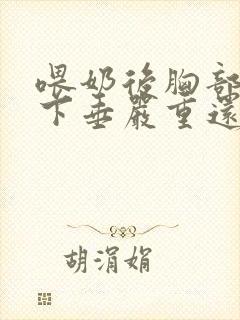 喂奶後胸部
下垂嚴重還
胡涓娟